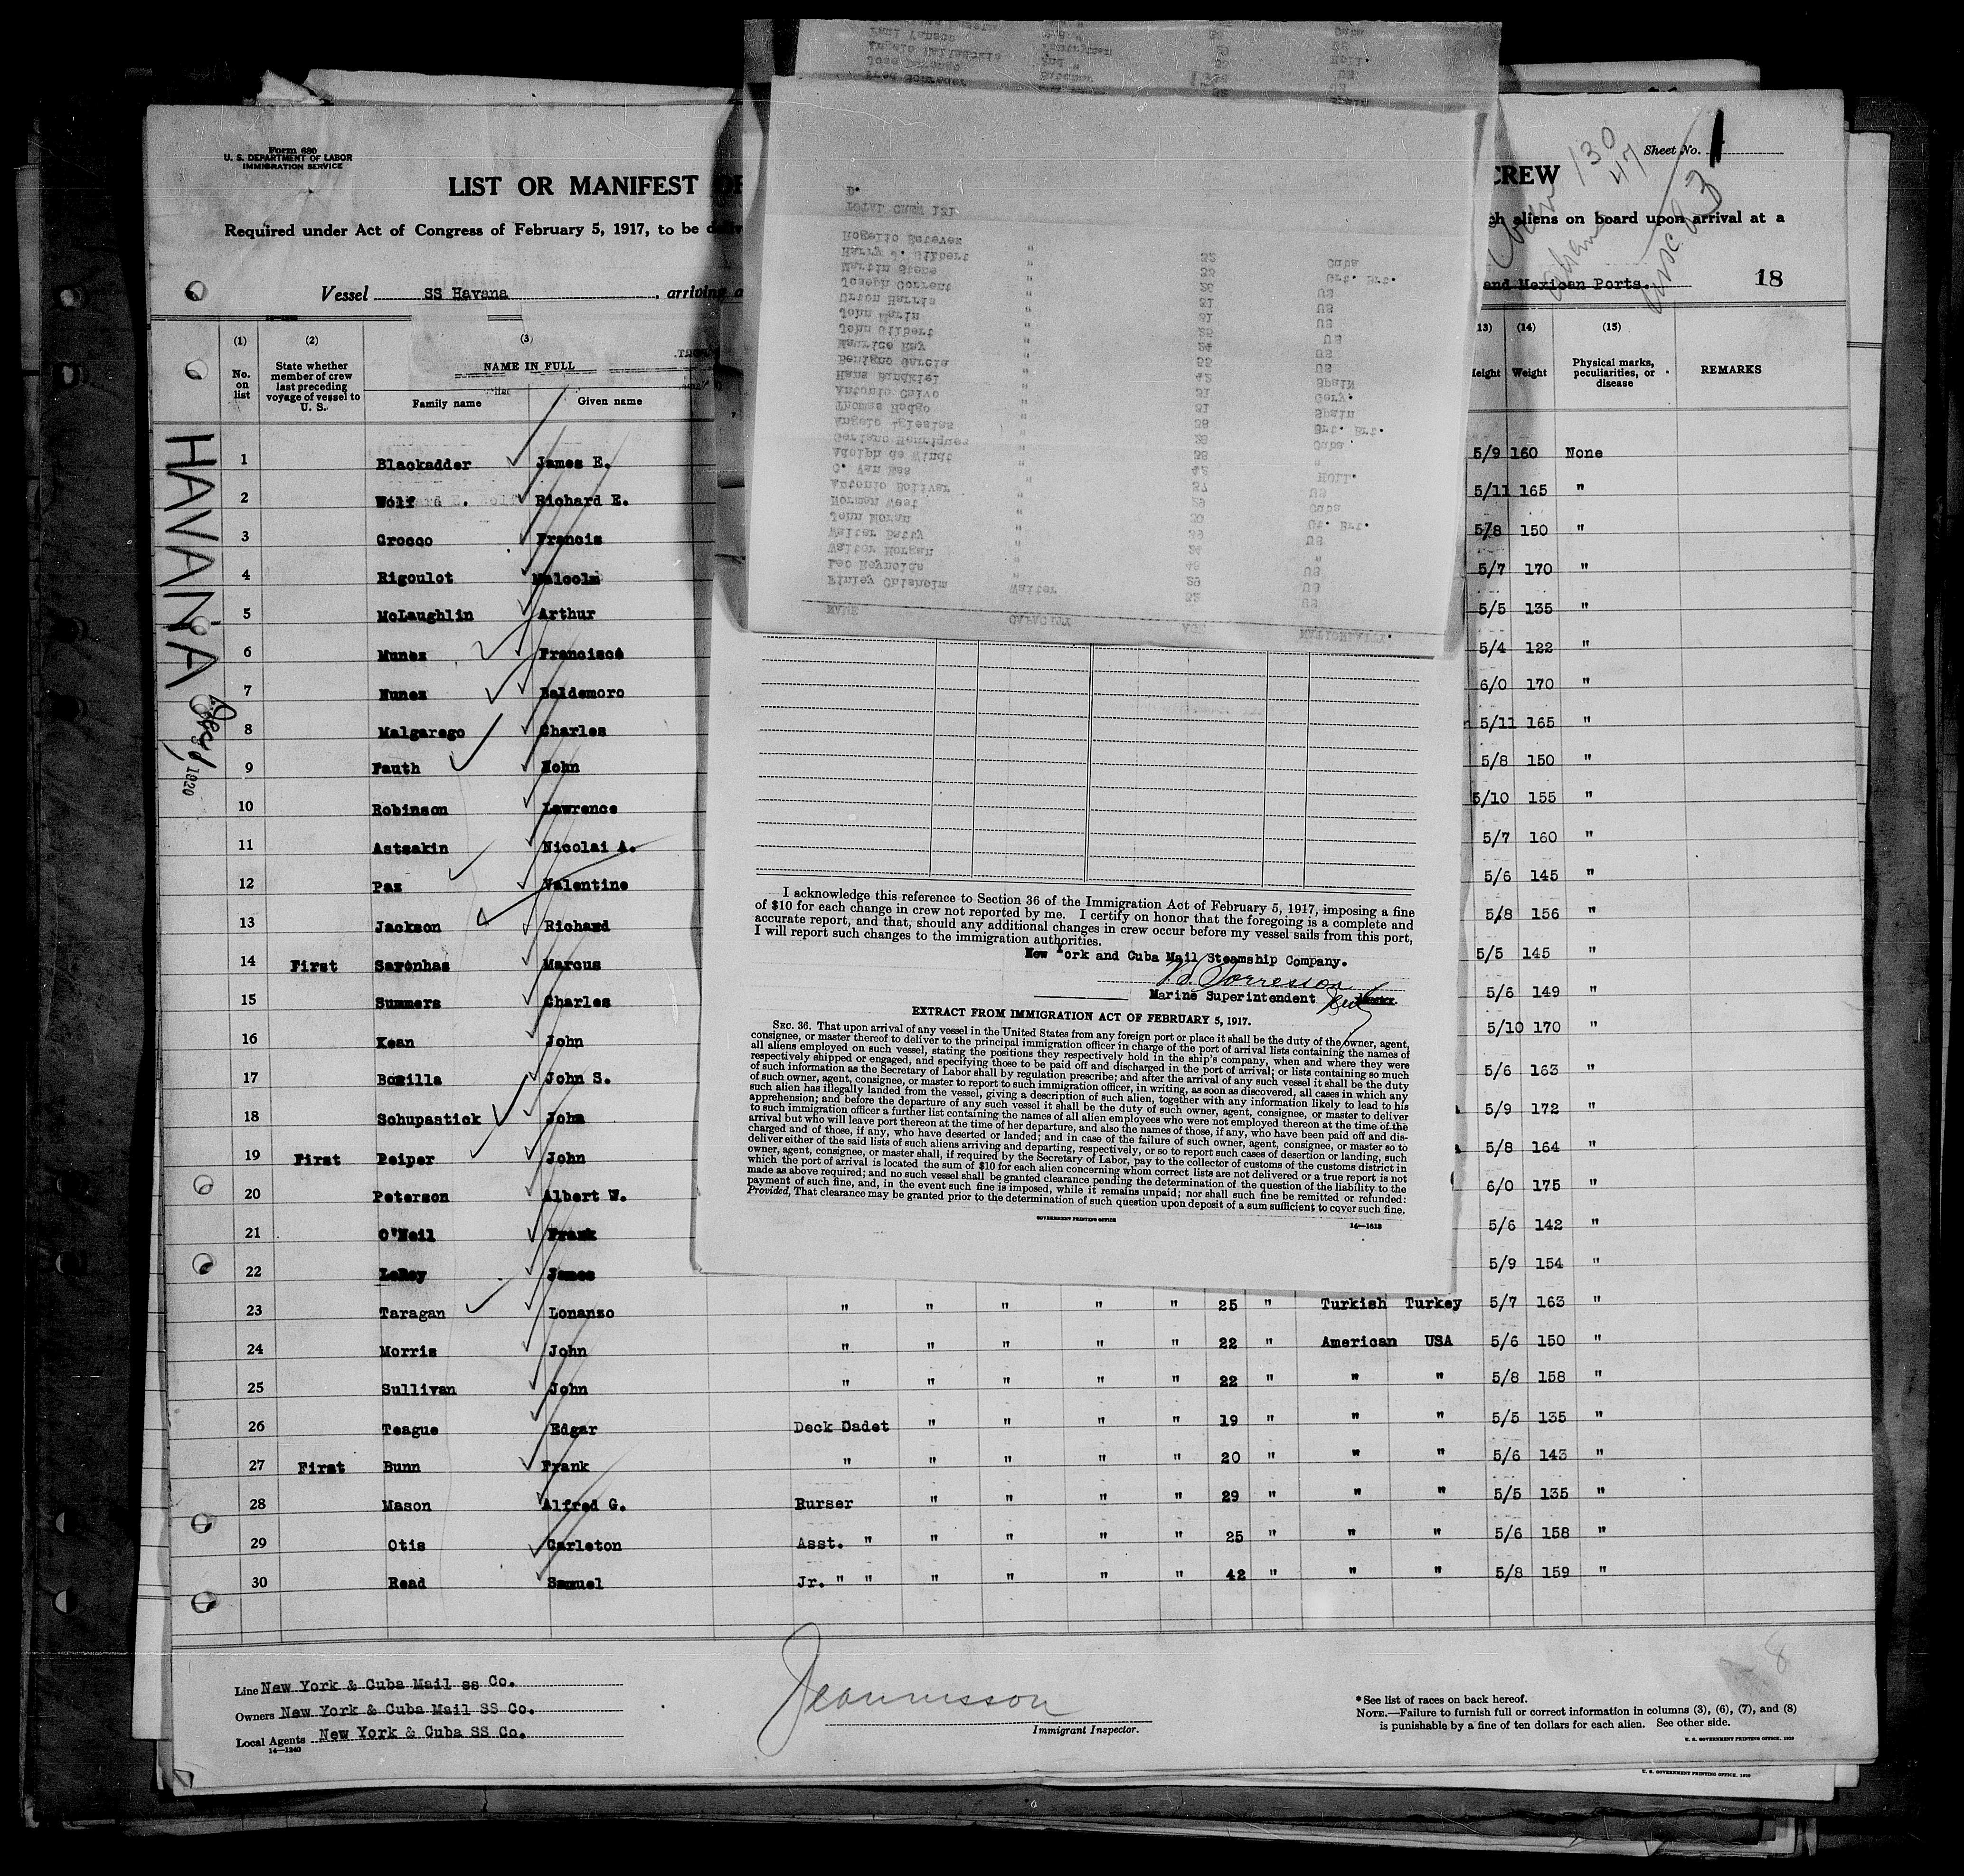 Form 680
U. S. DEPARTMENT OF LABOR
IMMIGRATION SERVICE
LIST OR MANIFEST OF
CREW
Sheet No. 1
130
47
Required under Act of Congress of February 5, 1917, to be
aliens on board upon arrival at a
Vessel SS Havana, arriving
and Mexican Ports.
18
HAVANA
1920
(1) (2) (3) (14) (15)
No. on list
State whether member of crew last preceding voyage of vessel to U. S.
NAME IN FULL
Family name Given name
Height Weight Physical marks, peculiarities, or disease REMARKS
1 Blackadder James E. 5/9 160 None
2 Wolf Richard E. 5/11 165 "
3 Grocco Francis 5/8 150 "
4 Rigoulot Malcolm 5/7 170 "
5 McLaughlin Arthur 5/5 135 "
6 Munez Francisco 5/4 122 "
7 Nunez Baldemoro 6/0 170 "
8 Malgarego Charles 5/11 165 "
9 Fauth 5/8 150 "
10 Robinson Lawrence 5/10 155 "
11 Astsakin Nicolai A. 5/7 160 "
12 Paz Valentine 5/6 145 "
13 Jackson Richard 5/8 156 "
14 First Savenhas Marcus 5/5 145 "
15 Summers Charles 5/6 149 "
16 Kean John 5/10 170 "
17 Bozilla John S. 5/6 163 "
18 Schupastick John 5/9 172 "
19 First Peiper John 5/8 164 "
20 Peterson Albert W. 6/0 175 "
21 O'Neil Frank 5/6 142 "
22 LeRoy James 5/9 154 "
23 Taragan Lonanzo " " " " " 25 " Turkish Turkey 5/7 163 "
24 Morris John " " " " " 22 " American USA 5/6 150 "
25 Sullivan John " " " " " 22 " " " 5/8 158 "
26 Teague Edgar Deck Cadet " " " " 19 " " " 5/5 135 "
27 First Bunn Frank " " " " " 20 " " " 5/6 143 "
28 Mason Alfred G. Purser " " " " 29 " " " 5/5 135 "
29 Otis Carleton Asst. " " " " " 25 " " " 5/6 158 "
30 Read Samuel Jr. " " " " " " 42 " " " 5/8 159 "
NAME CAPACITY AGE NATIONALITY.
Finley Chisholm Waiter 32 US
Leo Reynolds " 29 US
Walter Morgan " 49 US
Walter Batty " 24 "
John Moran " 39 US
Norman West " 30 Gt. Brt.
Antonio Bolivar " 29 Cuba
C. Van Ess " 37 US
Adolph de Windt " 42 Holl.
Gerlano Henriques " 38 "
Angelo Iglesias " 29 Cuba
Thomas Hodgo " 38 Brt. Brt.
Antonio Calvo " 31 Spain
Hans Bundklei " 31 Gery.
Benigno Garcia " 42 Spain
Maurice Ray " 55 US
John Gilbert " 24 US
John Marin " 25 US
Urton Harris " 31 US
Joseph Corrent " 31 US
Martin Stene " 26 US
Harry J. Gilbert " 33 Grt. Brt.
Rogelio Estevez " 32 Cuba
TOTAL CREW 131
I acknowledge this reference to Section 36 of the Immigration Act of February 5, 1917, imposing a fine
of $10 for each change in crew not reported by me. I certify on honor that the foregoing is a complete and
accurate report, and that, should any additional changes in crew occur before my vessel sails from this port,
I will report such changes to the immigration authorities.
New York and Cuba Mail Steamship Company.
Marine Superintendent
EXTRACT FROM IMMIGRATION ACT OF FEBRUARY 5, 1917.
SEC. 36. That upon arrival of any vessel in the United States from any foreign port or place it shall be the duty of the owner, agent,
consignee, or master thereof to deliver to the principal immigration officer in charge of the port of arrival lists containing the names of
all aliens employed on such vessel, stating the positions they respectively hold in the ship's company, when and where they were
respectively shipped or engaged, and specifying those to be paid off and discharged in the port of arrival; or lists containing so much
of such information as the Secretary of Labor shall by regulation prescribe; and after the arrival of any such vessel it shall be the duty
of such owner, agent, consignee, or master to report to such immigration officer, in writing, as soon as discovered, all cases in which any
such alien has illegally landed from the vessel, giving a description of such alien, together with any information likely to lead to his
apprehension; and before the departure of any such vessel it shall be the duty of such owner, agent, consignee, or master to deliver
to such immigration officer a further list containing the names of all alien employees who were not employed thereon at the time of the
arrival but who will leave port thereon at the time of her departure, and also the names of those, if any, who have been paid off and dis-
charged and of those, if any, who have deserted or landed; and in case of the failure of such owner, agent, consignee, or master so to
deliver either of the said lists of such aliens arriving and departing, respectively, or so to report such cases of desertion or landing, such
owner, agent, consignee, or master shall, if required by the Secretary of Labor, pay to the collector of customs of the customs district in
which the port of arrival is located the sum of $10 for each alien concerning whom correct lists are not delivered or a true report is not
made as above required; and no such vessel shall be granted clearance pending the determination of the question of the liability to the
payment of such fine, and, in the event such fine is imposed, while it remains unpaid; nor shall such fine be remitted or refunded:
Provided, That clearance may be granted prior to the determination of such question upon deposit of a sum sufficient to cover such fine.
GOVERNMENT PRINTING OFFICE 14—1613
Line New York & Cuba Mail ss Co.
Owners New York & Cuba Mail SS Co.
Local Agents New York & Cuba SS Co.
14—1240
Immigrant Inspector.
8
*See list of races on back hereof.
NOTE.—Failure to furnish full or correct information in columns (3), (6), (7), and (8)
is punishable by a fine of ten dollars for each alien. See other side.
U. S. GOVERNMENT PRINTING OFFICE, 1920
U. S. GOVERNMENT PRINTING OFFICE, 1920